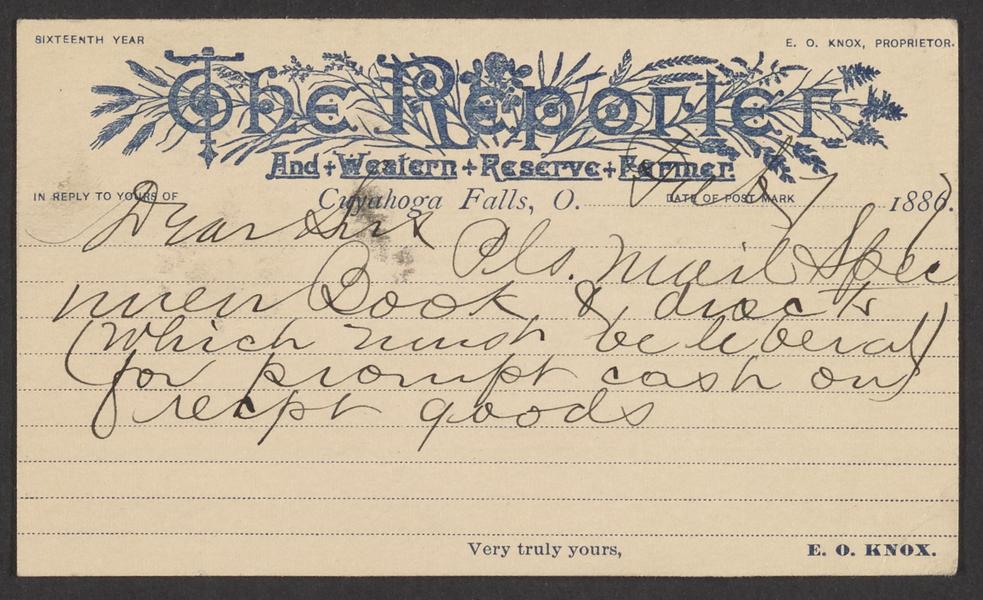 SIXTEENTH YEAR
E. O. KNOX, PROPRIETOR.
The Reporter
And + Western + Reserve + Farmer.
IN REPLY TO YOURS OF
Cuyahoga Falls, O.
DATE OF POST MARK
1886.
Dear Sirs Pls. Mail Spec
imen Book &
(Which must be liberal)
for prompt cash on
recpt goods
Very truly yours,
E. O. KNOX.